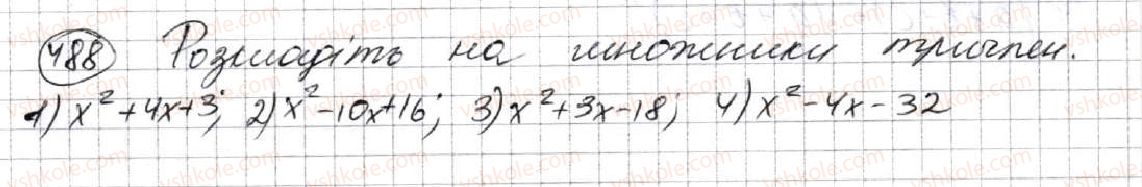 488 Розкладіть на множники тричлен.
1) x²+4x+3; 2) x²-10x+16; 3) x²+3x-18; 4) x²-4x-32